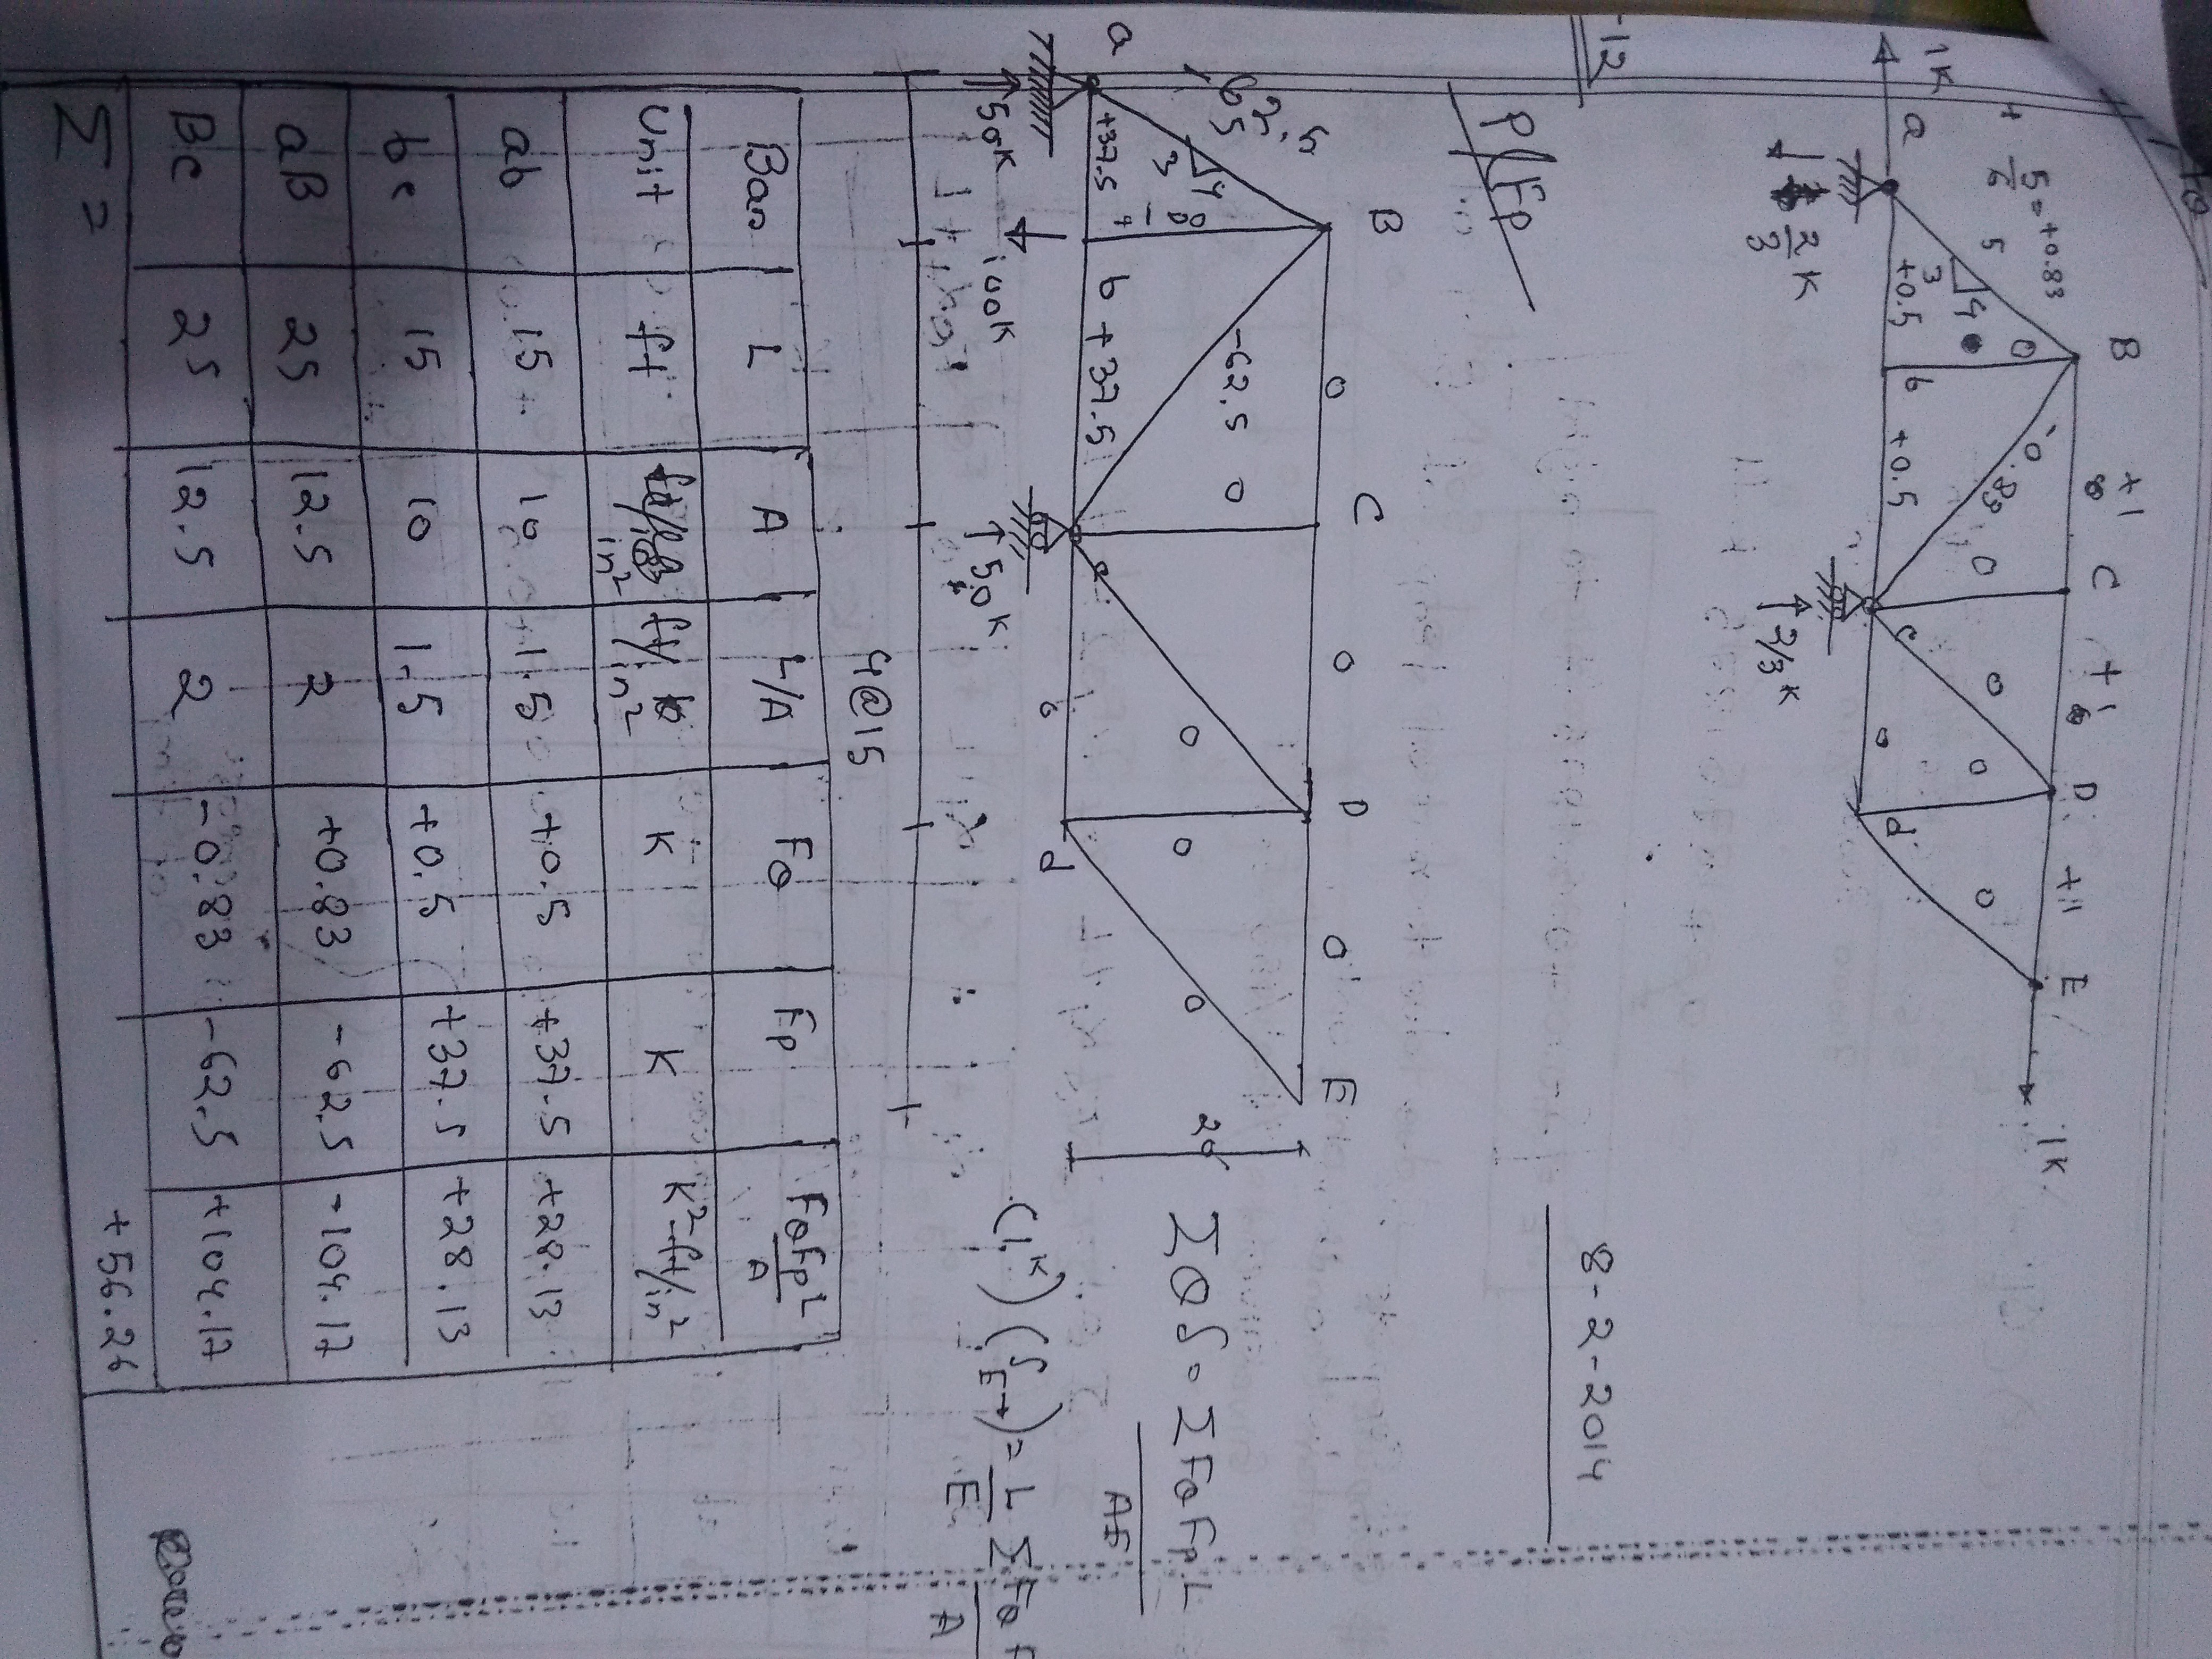 1K
a
+ 5/6 5 = +0.83
B
+1
C
+1
D
+1
E
1K
3
4
0
-0.83
0
0
0
0
+0.5
b
+0.5
c
0
d
2/3 K
2/3 K
-12
8-2-2014
P/FP
B
0
C
0
D
0
E
-62.5
4
3
-62.5
0
0
0
0
20'
a
+37.5
b
+37.5
c
0
d
50K
100K
50K
4@15
ΣQδ = ΣFQFPL
AE
(1K) (δE→) = L ΣFQ F
E A
Bar L A L/A FQ FP FQFPL/A
Unit ft in² ft/in² K K K²-ft/in²
ab 15 10 1.5 +0.5 +37.5 +28.13
bc 15 10 1.5 +0.5 +37.5 +28.13
aB 25 12.5 2 +0.83 -62.5 -104.17
Bc 25 12.5 2 -0.83 -62.5 +104.17
Σ = +56.26